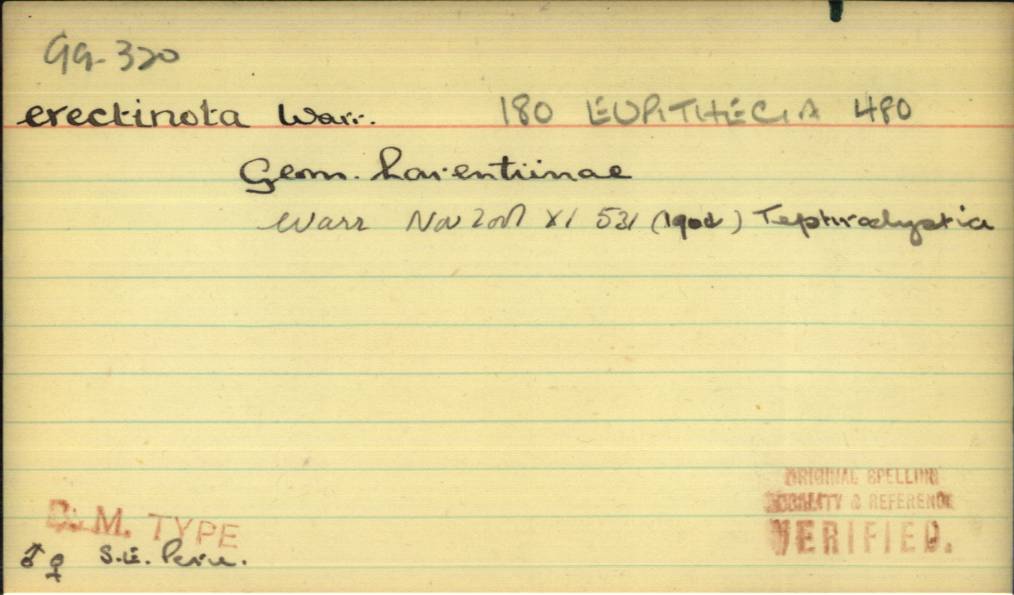 Gg-320
erectinota Warr. 180 EUPITHECIA 480
Geom. Larentiinae
Warr Nov Zool XI 531 (1904) Tephroclystia
B. M. TYPE
♂ ♀ S.E. Peru.
ORIGINAL SPELLING
LOCALITY & REFERENCE
VERIFIED.